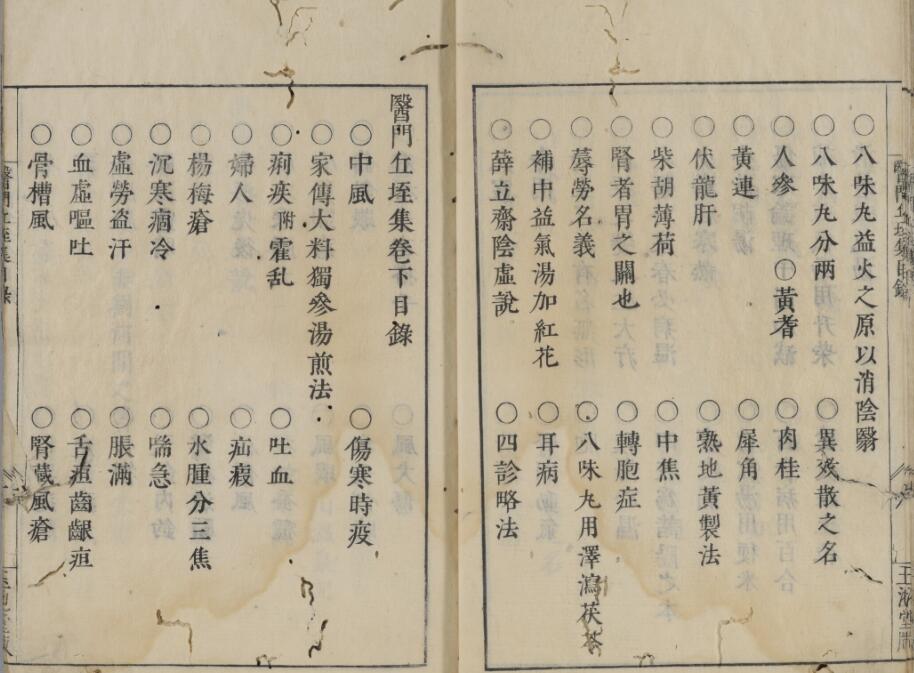 ○八味丸益火之原以消陰翳
○八味丸分兩 ○異效散之名
○人參○黃耆 ○肉桂
○黃連 ○犀角
○伏龍肝 ○熟地黃製法
○柴胡薄荷 ○中焦
○腎者胃之關也 ○轉胞症
○蓐勞名義 ○八味丸用澤瀉茯苓
○補中益氣湯加紅花 ○耳病
○薛立齋陰虛說 ○四診略法
醫門丘垤集卷下目錄
○中風 ○傷寒時疫
○家傳大料獨參湯煎法
○痢疾附霍亂 ○吐血
○婦人 ○疝瘕
○楊梅瘡 ○水腫分三焦
○沉寒痼冷 ○喘急
○虛勞盜汗 ○脹滿
○血虛嘔吐 ○舌疸齒齦疸
○骨槽風 ○腎蔵風瘡